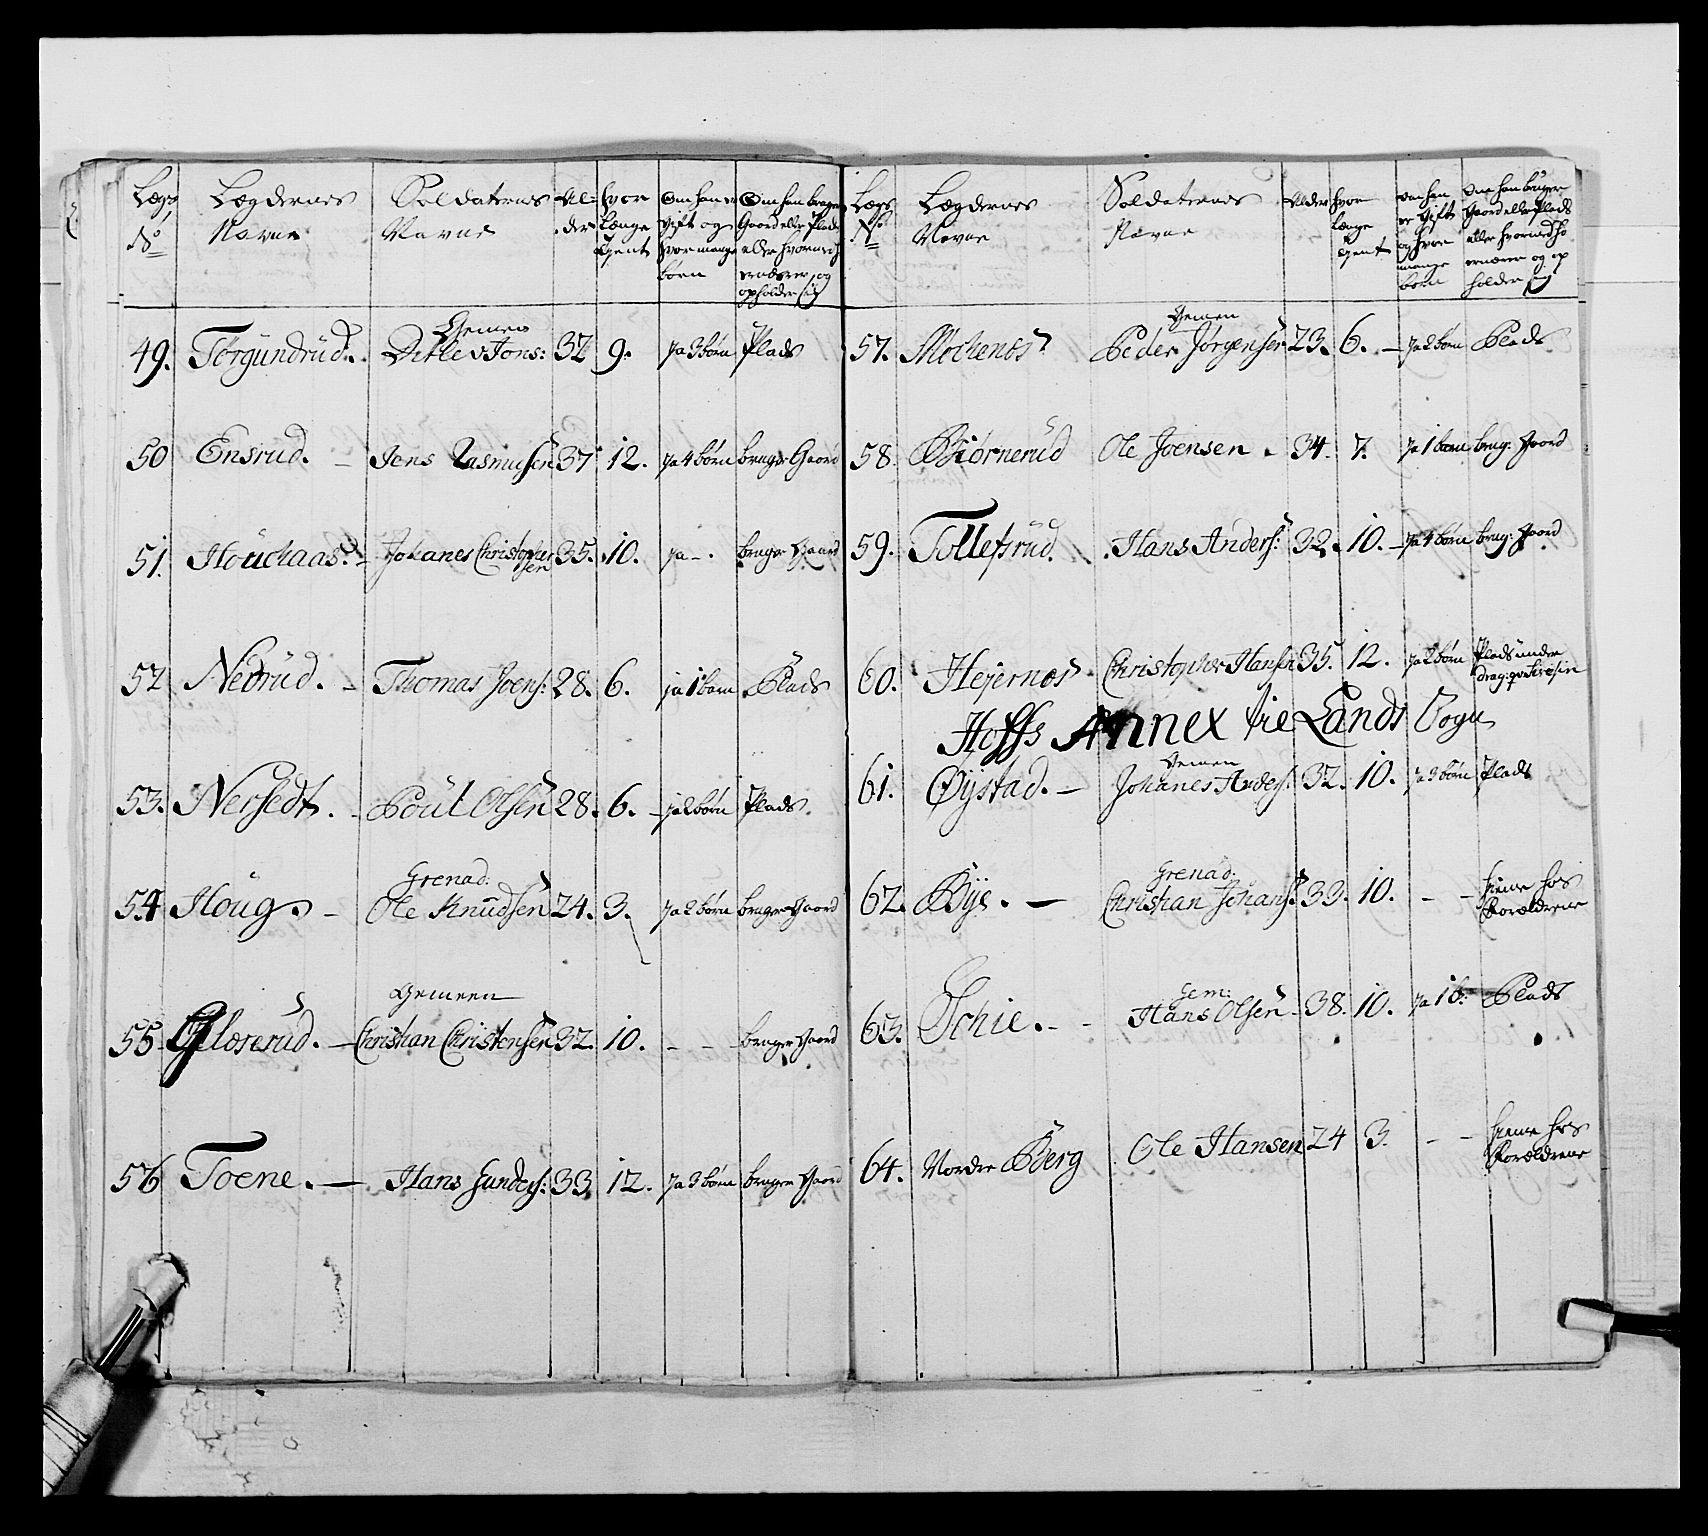 Lægs Lægdernes Soldaternes Al- hvor Om han er Om han bruger
No Navne Navne der længe gift og Gaard eller Plads
tient hvor mange eller hvormed h
børn ernærer og
opholder sig
Gemen
49. Torgundrud. Ditlev Jons: 32 9. ja 3 børn Plads
50 Ensrud. Jens Rasmusen 37 12. ja 4 børn bruger Gaard
51. Houchaas. Johanes Christopher 35. 10. ja - . bruger Gaard
sen
52 Nedrud. Thomas Joens: 28. 6. ja 1 barn Plads
53. Nersedt. Poul Olsen 28. 6. ja 2 børn Plads.
Grenad:
54 Houg. Ole Knudsen 24. 3. ja 2 børn bruger Gaard
Gemeen
55 Glæserud. Christian Christensen 32. 10. - - bruger Gaard
56 Toene. Hans Gunders: 33. 12. ja 3 børn bruger Gaard
Lægs Lægdernes Soldaternes Alder hvor Om han Om han bruger
No Navne Navne længe er Gift Gaard eller Plads
tient og hvor eller hvormed ha
mange ernærer og op
børn holder sig
Gemen
57. Mochenes Peder Jørgensen 23. 6. ja 2 børn Plads
58. Biørnerud Ole Joensen 34. 7. ja 1 barn brug: Gaard
59. Tollefsrud. Hans Anders: 32. 10. ja 4 børn brug: Gaard
60. Hejernes Christopher Hansen 35. 12. ja 2 børn Plads under
Hoffs Annex til Lands Sogn
Gemen
61. Øystad. Johanes Anders: 32. 10. ja 3 børn Plads
Grenad:
62. Bye. Christian Johans: 33. 10. - - hieme hos
Forældrene
Gem:
63. Schie. Hans Olsen 38. 10. ja 1 b: Plads
64. Nordre Berg Ole Hansen 24 3. - - hieme hos
Forældrene